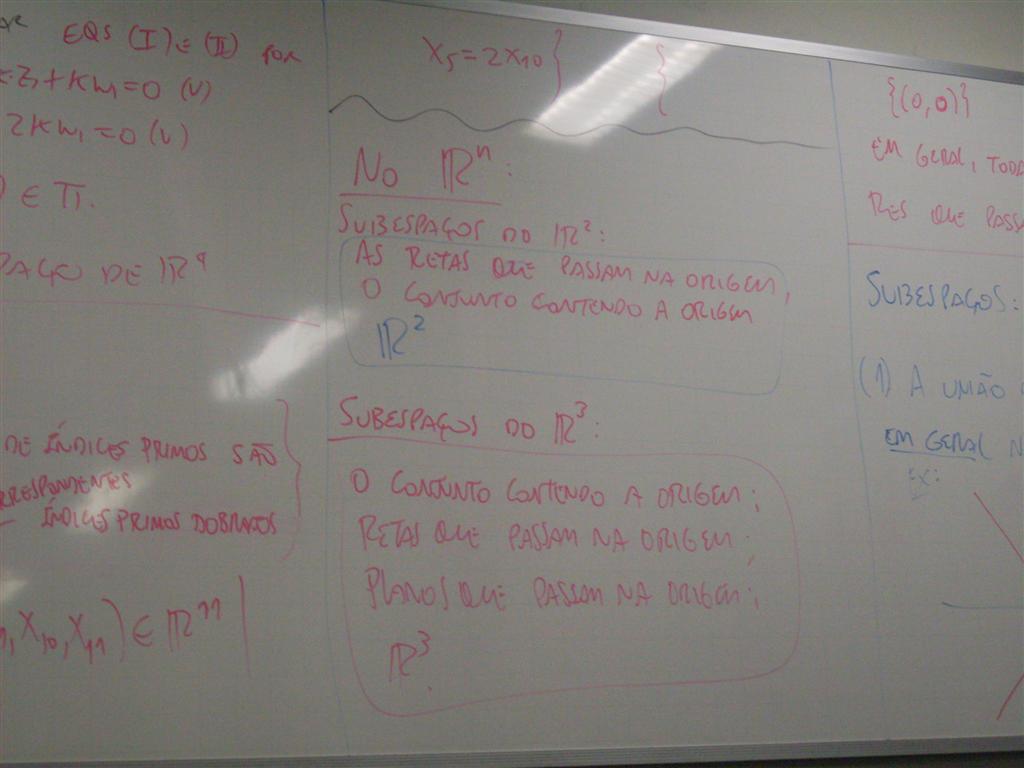 EQS (I) E (II) POR
K Z₁ + KW₁ = 0 (V)
2KW₁ = 0 (V)
∈ π.
PAÇO DE ℝ⁴
DE ÍNDICES PRIMOS SÃO
RRESPONDENTES
ÍNDICES PRIMOS DOBRADOS
, X₁₀, X₁₁) ∈ ℝ¹¹
X₅ = 2X₁₀ }
{
NO ℝⁿ:
SUBESPAÇOS DO ℝ²:
AS RETAS QUE PASSAM NA ORIGEM,
O CONJUNTO CONTENDO A ORIGEM
ℝ²
SUBESPAÇOS DO ℝ³:
O CONJUNTO CONTENDO A ORIGEM;
RETAS QUE PASSAM NA ORIGEM;
PLANOS QUE PASSAM NA ORIGEM;
ℝ³.
{(0,0)}
EM GERAL, TODA
RES QUE PASSA
SUBESPAÇOS:
(1) A UNIÃO
EM GERAL N
EX: